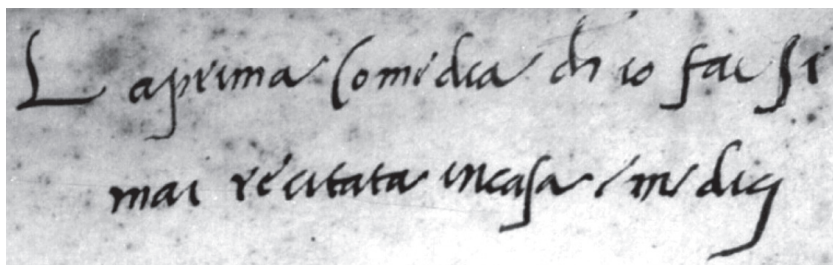 La prima Comedia ch io facsi
mai recitata in casa i medicj